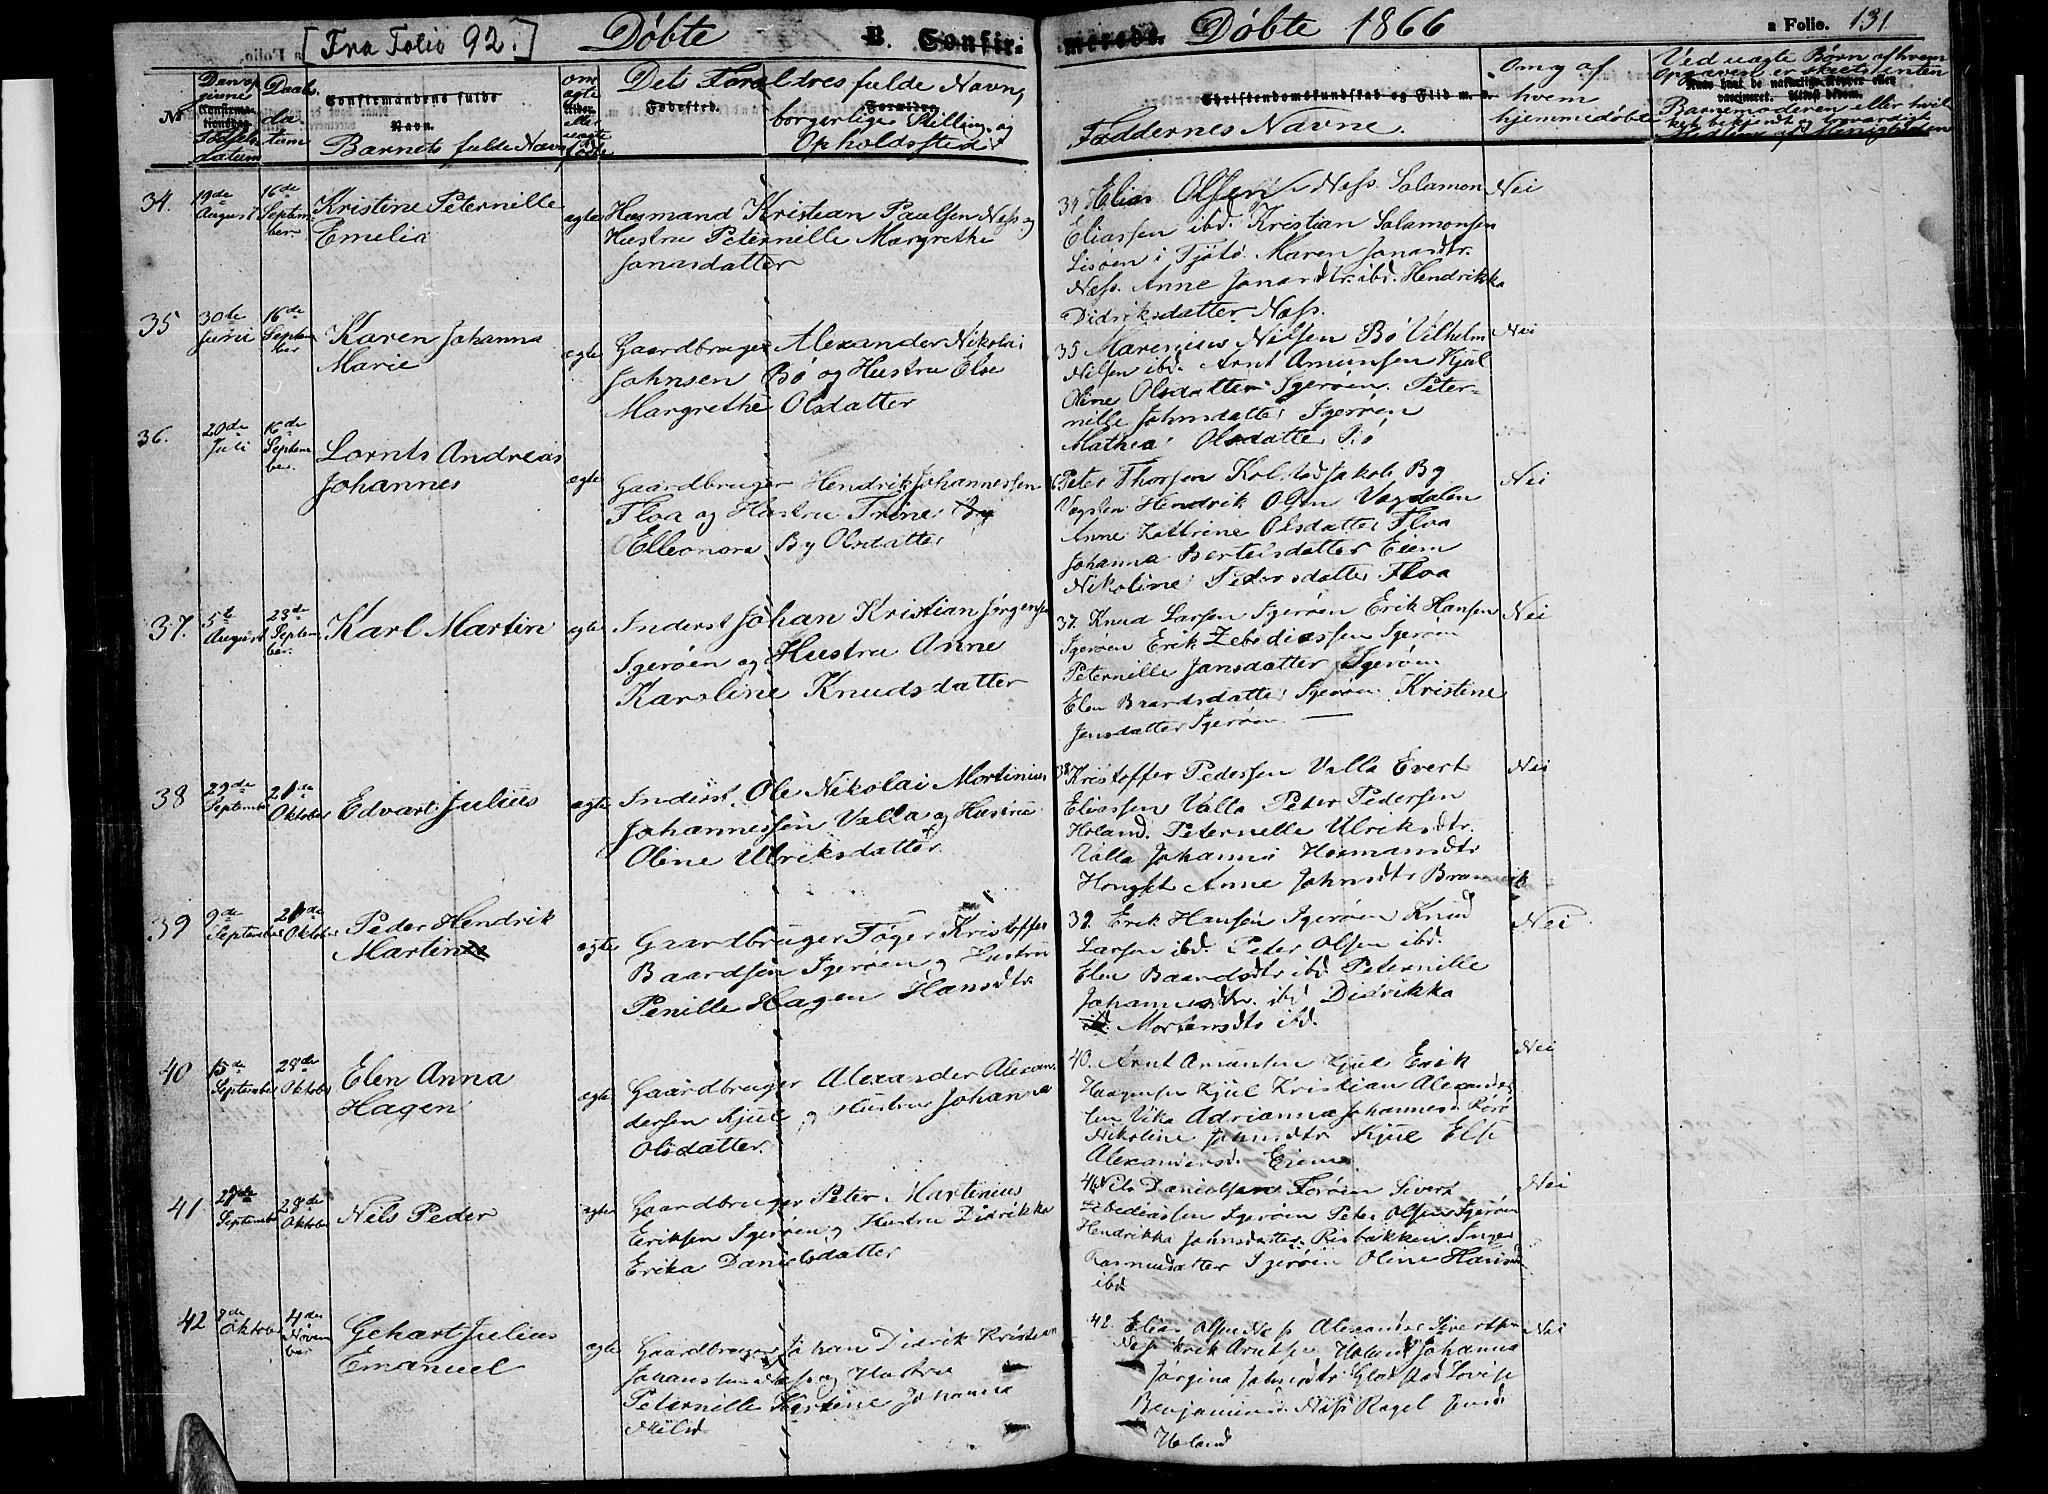 [Fra Folio 92.] Døbte B. Confir-
merede. Døbte 1866 a Folio. 131
No
Den opgivne Fødselsdatum
Daabsdatum
Confirmandens fulde Navn.
Barnets fulde Navn
om ægte eller uægte født
Dets Forældres fulde Navn,
Fødested. Forældre
borgerlige Stilling og
Opholdssted
Christendomskundskab og Flid m. v.
Faddernes Navne.
Om og af
hvem
hjemmedøbt
Ved uægte Børn af hvem
Opgaven er skeet enten
34. 19de August 16de September. Kristine Peternille
Emelia
ægte Husmand Kristian Paulsen Næss og
Hustru Peternille Margrethe
Jonasdatter
34 Elias Olsen Næss. Salamon Nei
Eliassen ibd. Kristian Salamonsen
Lisøen i Tjøtø. Maren Jonasdtr.
Næss. Anne Jonasdtr. ibd. Hendrikka
Didriksdatter Næss.
35 30te Juni 16de September Karen Johanna
Marie
ægte Gaardbruger Alexander Nikolai
Johnsen Bø og Hustru Else
Margrethe Olsdatter
35 Marenius Nilsen Bø Vilhelm Nei
Nilsen ibd. Arnt Amunsen Kjul
Oline Olsdatter Igerøen. Peter-
nille Johnsdatter Igerøen
Mathea Olsdatter Bø
36. 20de Juli 16de September. Lornts Andreas
Johannes
ægte Gaardbruger Hendrik Johannessen
Floa og Hustru Trine
Elleonora By Olsdatter
Peter Thorsen Kolstad Jakob By Nei
Hendrik Olsen Vagdalen
Anne Kathrine Olsdatter Floa
Johanna Berteusdatter Eiem
Nikoline Pedersdatter Floa
37. 5te August 23de September. Karl Martin
ægte Inderst Johan Kristian Jørgensen
Igerøen og Hustru Anne
Karoline Knudsdatter
37. Knud Larsen Igerøen Erik Hansen Nei
Igerøen Erik Zebediassen Igerøen
Peternille Jansdatter Igerøen
Elen Baardsdatter Igerøen Kristine
Jensdatter Igerøen
38 29de September 21de Oktober Edvart Julius
ægte Inderst Ole Nikolai Mortinius
Johannessen Valla og Hustru
Oline Ulriksdatter
38 Kristoffer Pedersen Valla Evert Nei
Eliassen Valla Peter Pedersen
Holand. Peternelle Ulriksdtr.
Valla Johanna Hermansdtr
Hongset Anne Johnsdtr
39 9de September 21de Oktober Peder Hendrik
Martin
ægte Gaardbruger Tøger Kristoffer
Baardsen Igerøen og Hustru
Penille Hagen Hansdtr
39. Erik Hansen Igerøen Knud Nei
Larsen ibd. Peter Olsen ibd.
Elen Baardsdtr ibd Peternille
Johannesdtr. ibd Didrikka
Mortensdtr ibd.
40 15de September 28de Oktober Elen Anna
Hagen
ægte Gaardbruger Alexander Alexan-
dersen Kjul og Hustru Johanna
Olsdatter.
40. Arnt Amunsen Kjul Erik Nei
Haagensen Kjul Kristian Alexander-
sen Vika Adrianna Johannesd. Rørø
Nikoline Johnsdtr Kjul Else
Alexandersd. Eiem
41 27de September 28de Oktober Nils Peder
ægte Gaardbruger Peter Martinius
Eriksen Igerøen og Hustru Didrikka
Erika Danielsdatter
41 Nils Danielsen Forøen Sivert Nei
Zebediassen Igerøen Peter Olsen Igerøen
Hendrikka Johnsdatter Risbakken. Inger
Rasmusdatter Igerøen Oline Hansd
ibd
42 8de Oktober 4de November Gehart Julius
Emanuel
ægte Gaardbruger Johan Didrik Kristian
Johansen Næss og Hustru
Peternille Kirstine Johanna
Nilsd
42. Elias Olsen Næss Alexander Sivertsen Nei
Næss Erik Arntsen Holand Johanna
Jørgina Johnsdtr Gladstad Lovise
Benjaminsd. Næss Ragel Jensd
Holand